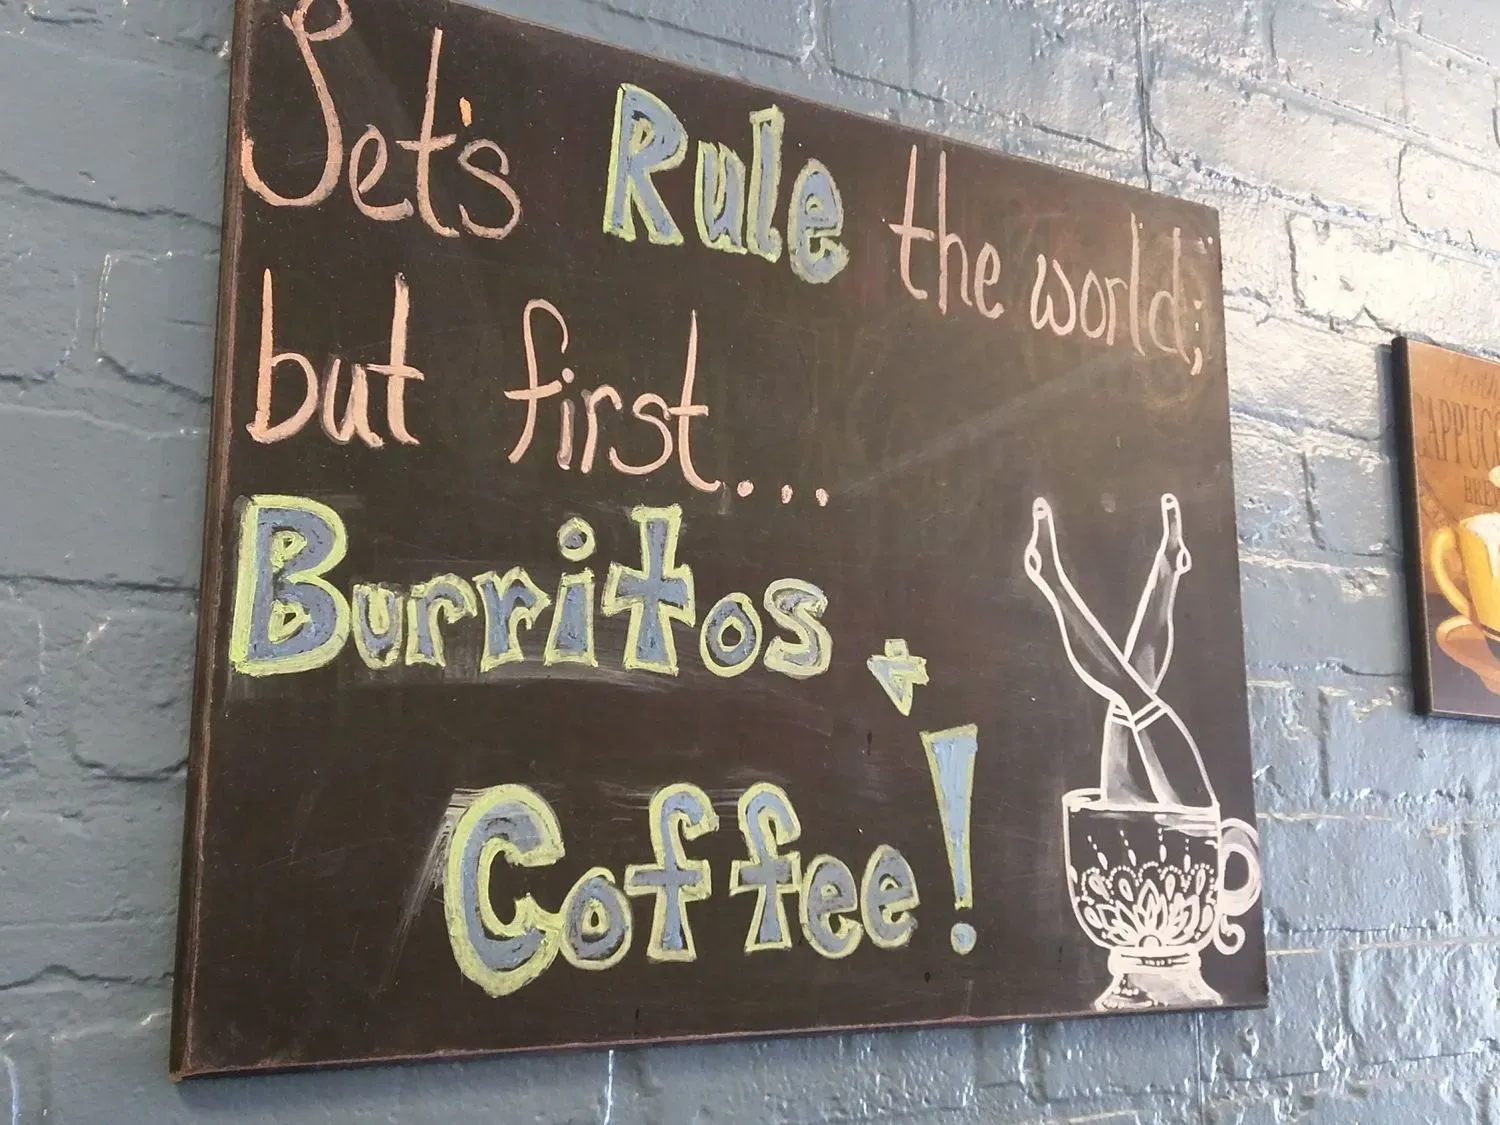 Let's Rule the world;
but first...
Burritos +
Coffee!
CAPPUC
BREW